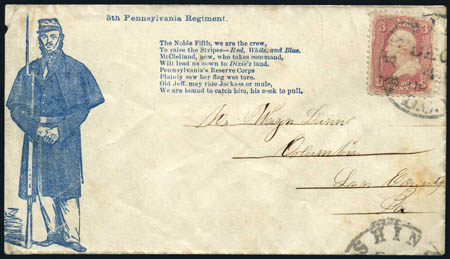 5th Pennsylvania Regiment.
The Noble Fifth, we are the crew,
To raise the Stripes—Red, White, and Blue.
McClelland, now, who takes command,
Will lead us down to Dixie's land.
Pennsylvania's Reserve Corps
Plainly saw her flag was tore.
Old Jeff. may ride Jackass or mule,
We are bound to catch him, his neck to pull.
3 3
Columbia
Pa
SHIN
D.C.